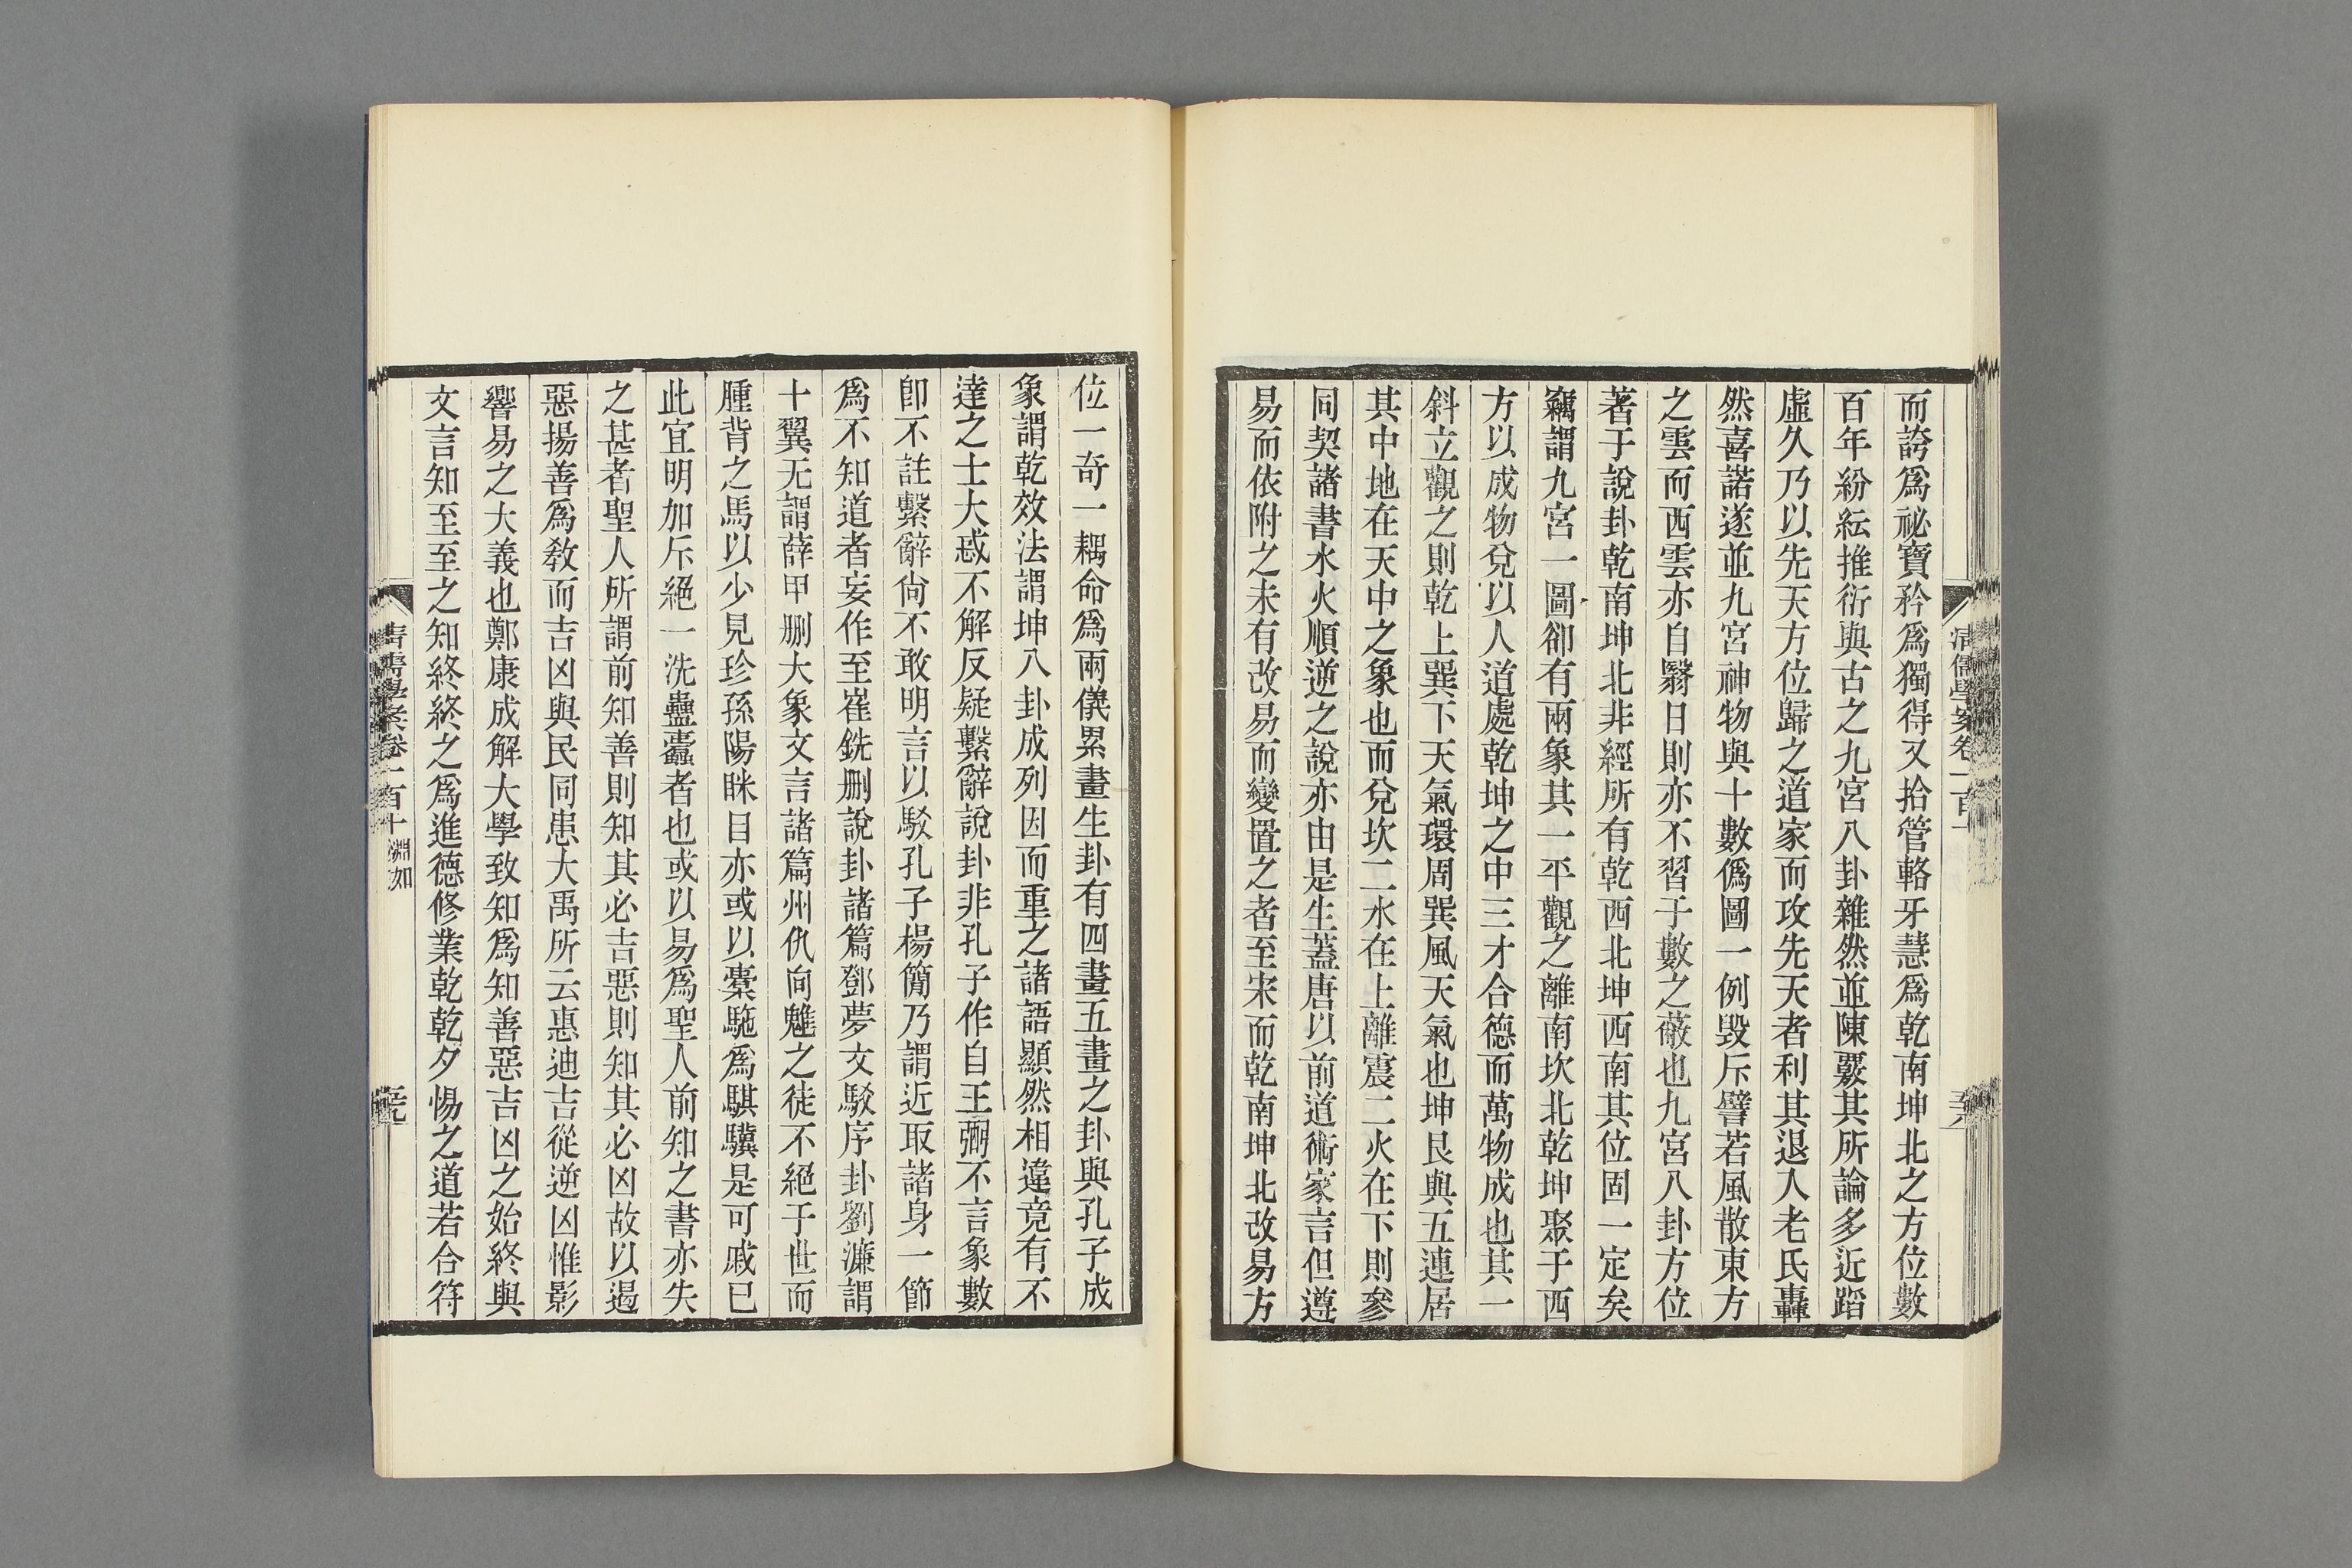 而誇爲祕寶矜爲獨得又拾管輅牙慧爲乾南坤北之方位數
百年紛紜推衍與古之九宮八卦雜然並陳覈其所論多近蹈
虛久乃以先天方位歸之道家而攻先天者利其退入老氏轟
然喜諾遂並九宮神物與十數僞圖一例毀斥譬若風散東方
之雲而西雲亦自翳日則亦不習于數之蔽也九宮八卦方位
著于說卦乾南坤北非經所有乾西北坤西南其位固一定矣
竊謂九宮一圖卻有兩象其一平觀之離南坎北乾坤聚于西
方以成物兌以人道處乾坤之中三才合德而萬物成也其一
斜立觀之則乾上巽下天氣環周巽風天氣也坤艮與五連居
其中地在天中之象也而兌坎二水在上離震二火在下則參
同契諸書水火順逆之說亦由是生蓋唐以前道術家言但遵
易而依附之未有改易而變置之者至宋而乾南坤北改易方
位一奇一耦命爲兩儀累畫生卦有四畫五畫之卦與孔子成
象謂乾效法謂坤八卦成列因而重之諸語顯然相違竟有不
達之士大惑不解反疑繫辭說卦非孔子作自王弼不言象數
卽不註繫辭尙不敢明言以駁孔子楊簡乃謂近取諸身一節
爲不知道者妄作至崔銑删說卦諸篇鄧夢文駁序卦劉濂謂
十翼无謂薛甲删大象文言諸篇州仇向魋之徒不絕于世而
腫背之馬以少見珍孫陽眯目亦或以橐駞爲騏驥是可戚已
此宜明加斥絕一洗蠱蠹者也或以易爲聖人前知之書亦失
之甚者聖人所謂前知善則知其必吉惡則知其必凶故以遏
惡揚善爲敎而吉凶與民同患大禹所云惠迪吉從逆凶惟影
響易之大義也鄭康成解大學致知爲知善惡吉凶之始終與
文言知至至之知終終之爲進德修業乾乾夕惕之道若合符
清儒學案卷一百十 淵如